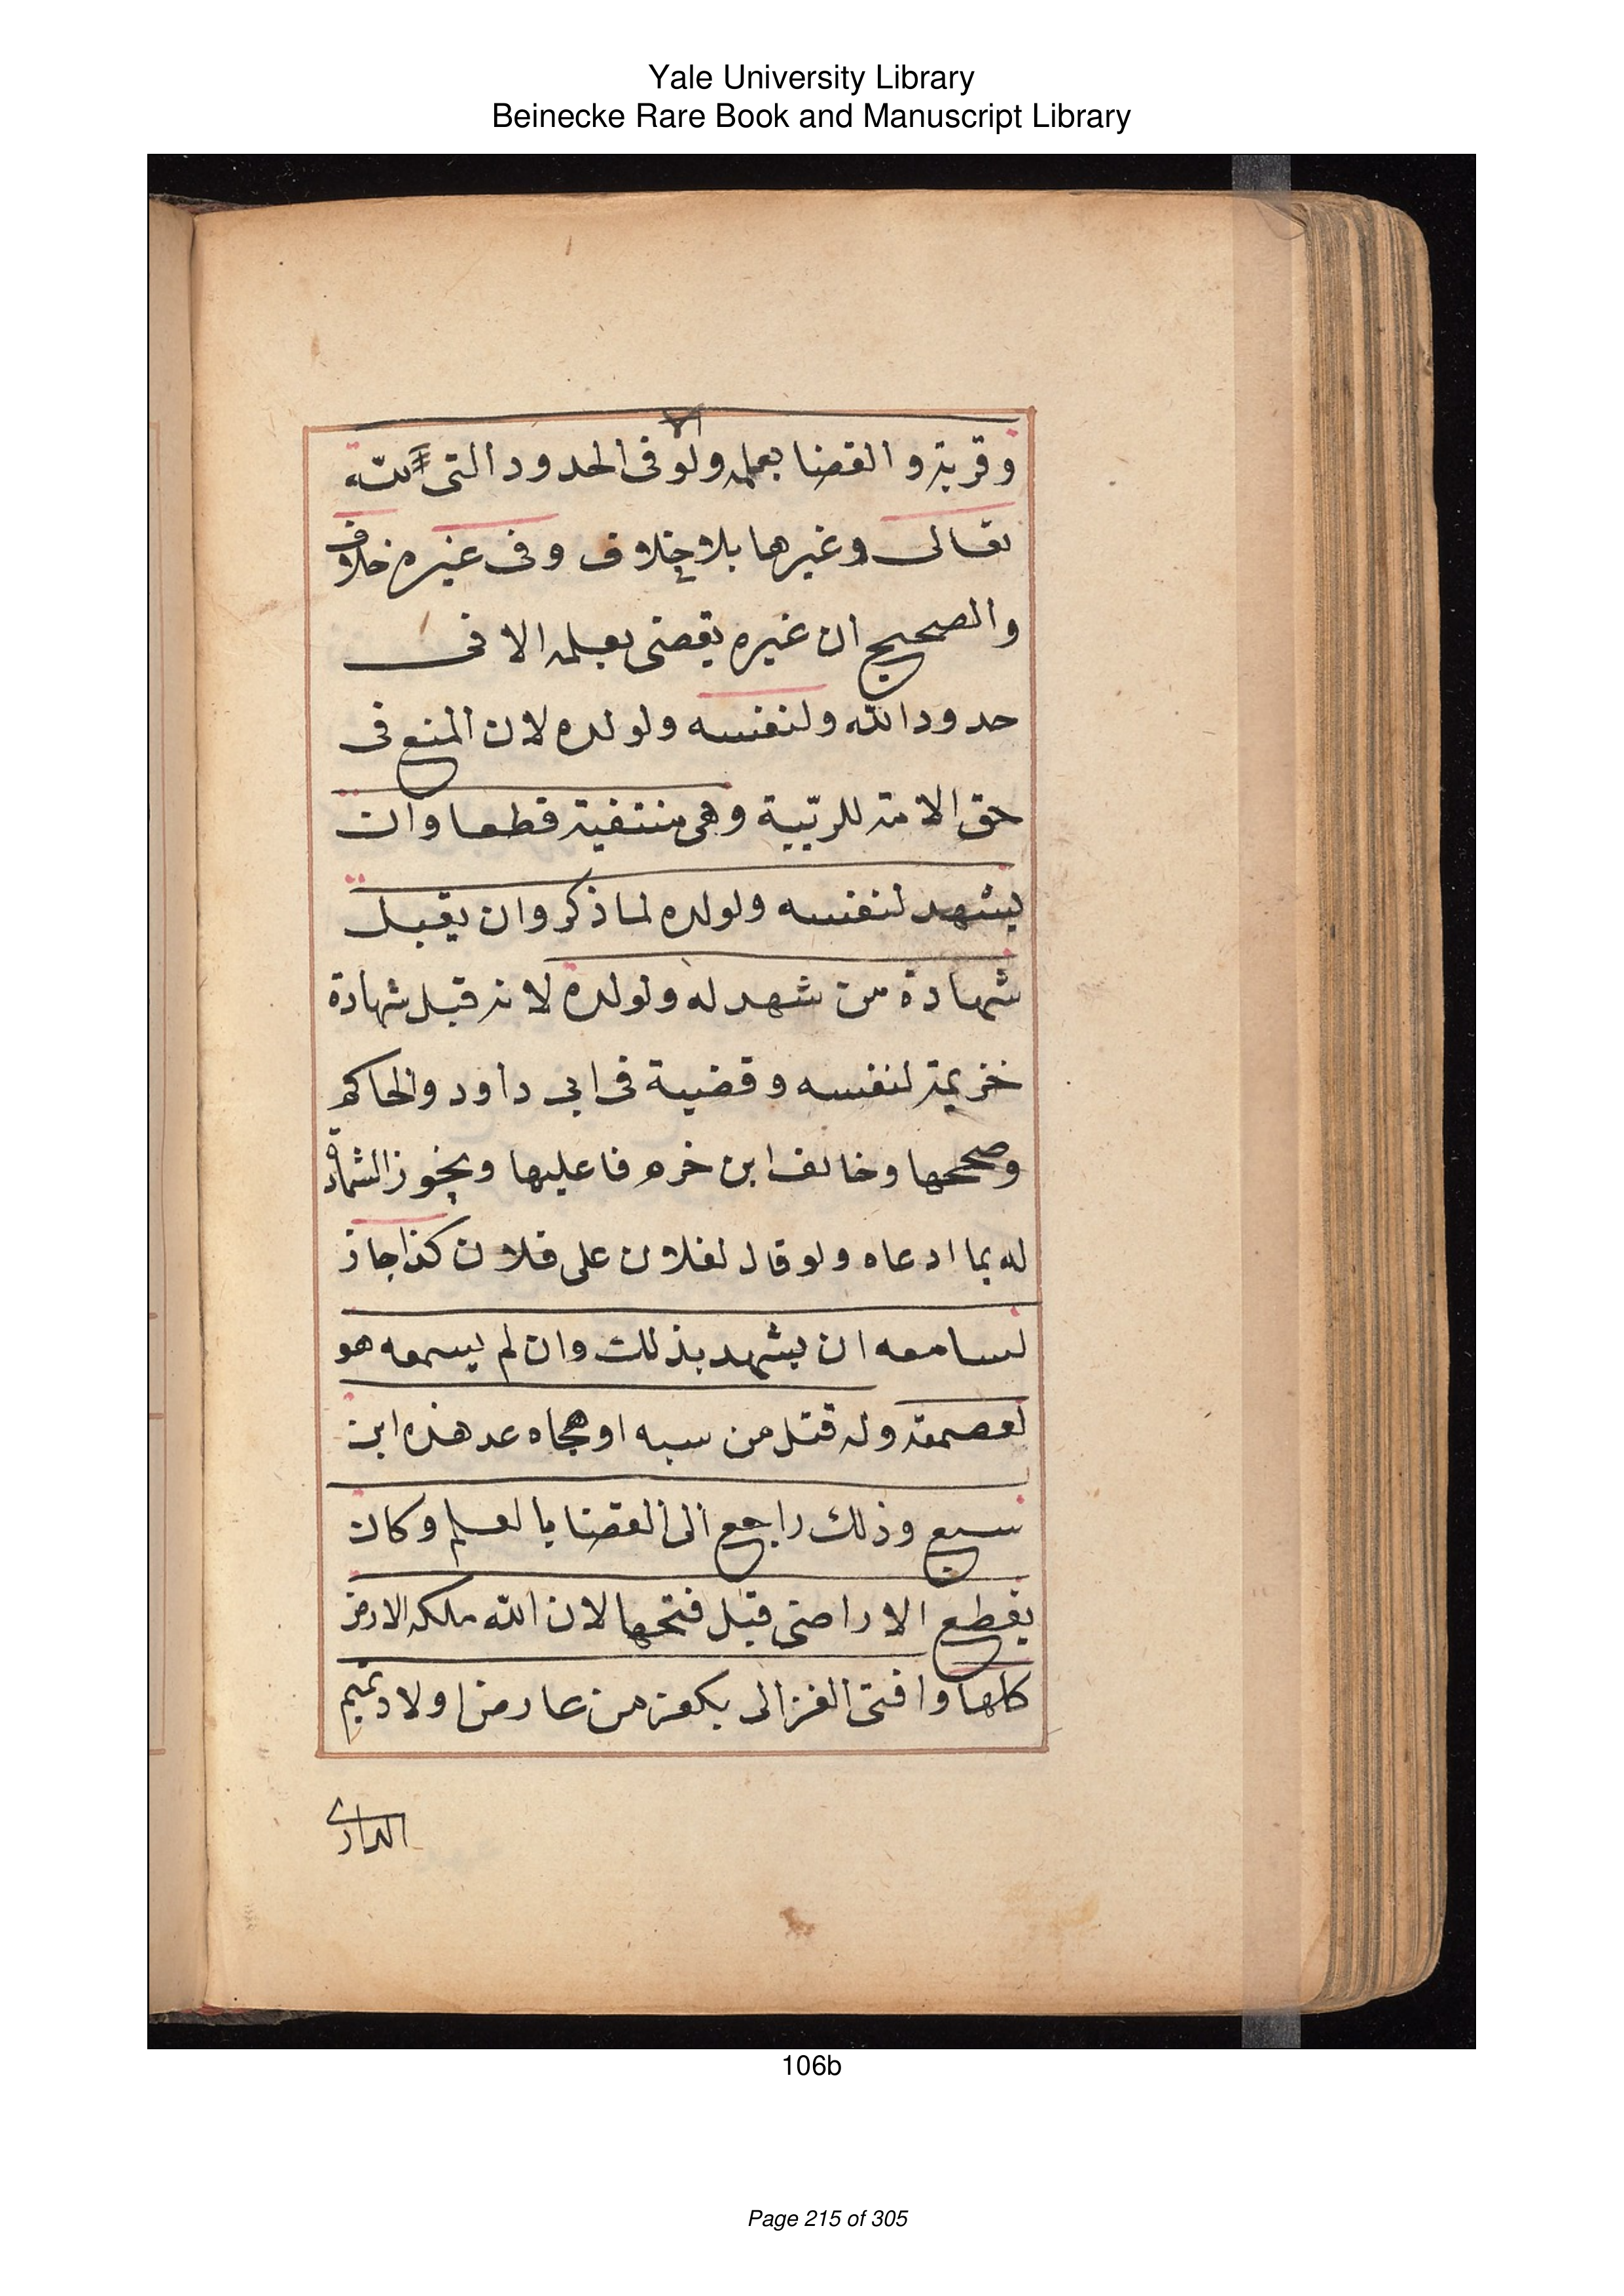 Yale University Library
Beinecke Rare Book and Manuscript Library
وقريبة والقضا بعلمه ولو فى الحدود التى لله
تعالى وغيرها بلا خلاف وفى غيره خلاف
والصحيح ان غيره يقضى بعلمه الا فى
حدود الله ولنفسه ولولده لان المنع فى
حق الامة للريبة وهى منتفية قطعا وان
يشهد لنفسه ولولده لما ذكر وان يقبل
شهادة من شهد له ولولده لانه قبل شهادة
خزيمة لنفسه وقضية فى ابى داود والحاكم
وصححها وخالف ابن خرم فاعليها ويجوز الشهادة
له بما ادعاه ولو قال لفلان على فلان كذا جاز
لسامعه ان يشهد بذلك وان لم يسمعه هو
لعصمته وله قتل من سبه او هجاه عد هذه ابن
سبع وذلك راجع الى القضا بالعلم وكان
يقطع الاراضى قبل فتحها لان الله ملكه الارض
كلها وافتى الغزالى بكفر من عارض اولاد تميم
الدارى
106b
Page 215 of 305